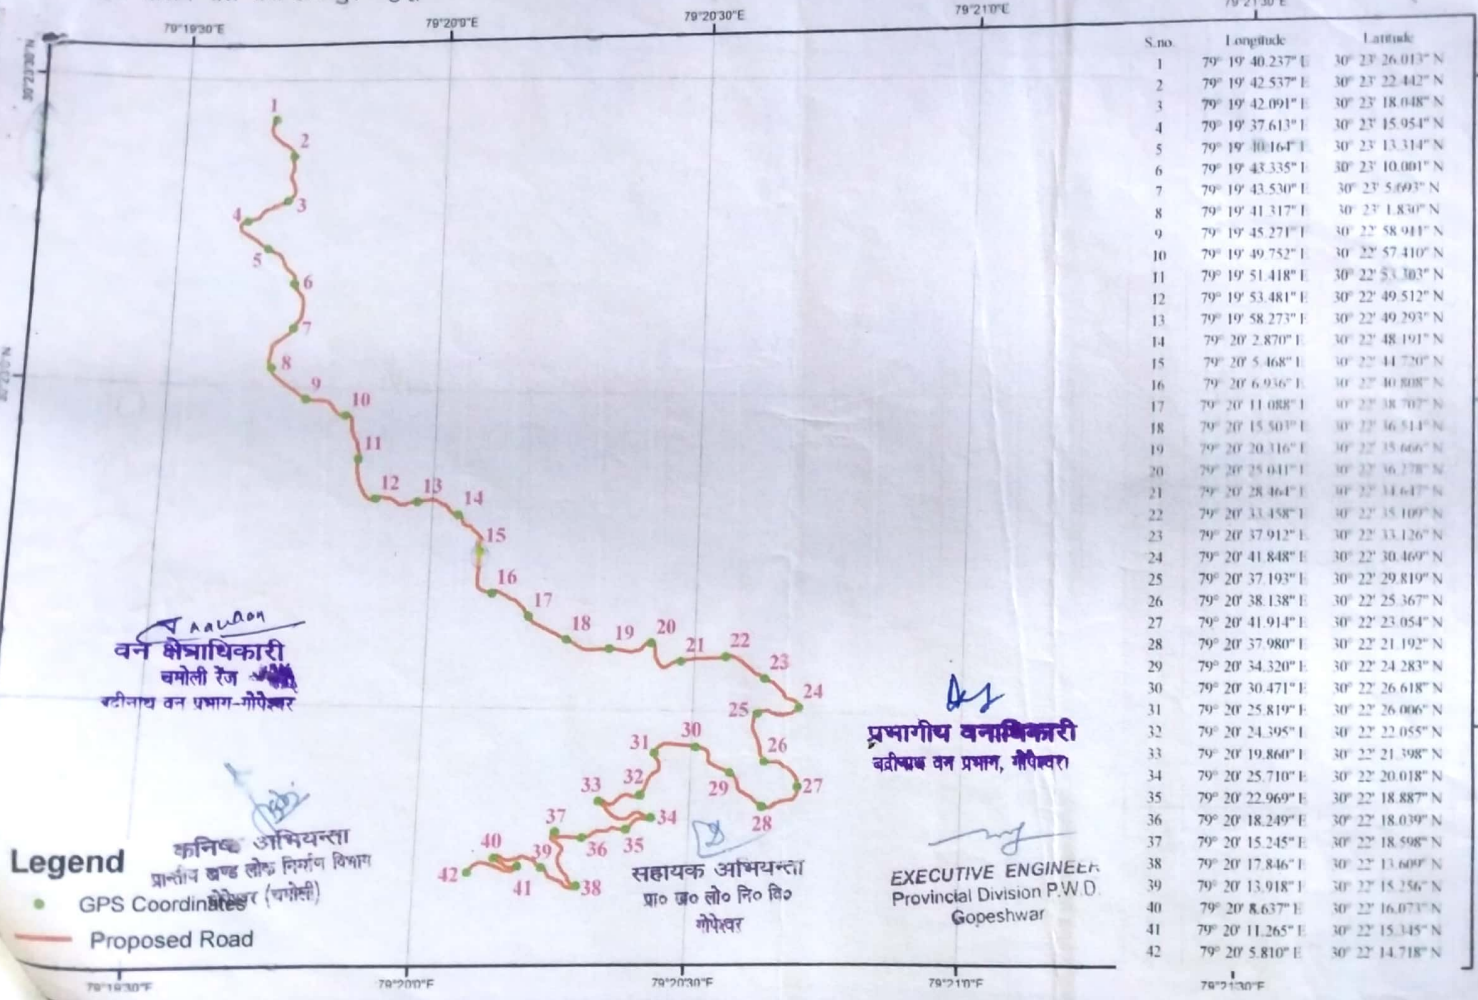 79°19'30"E 79°20'0"E 79°20'30"E 79°21'0"E 79°21'30"E
30°23'30"N
30°23'0"N
S.no Longitude Latitude
1 79° 19' 40.237" E 30° 23' 26.013" N
2 79° 19' 42.537" E 30° 23' 22.442" N
3 79° 19' 42.091" E 30° 23' 18.048" N
4 79° 19' 37.613" E 30° 23' 15.954" N
5 79° 19' 40.164" E 30° 23' 13.314" N
6 79° 19' 43.335" E 30° 23' 10.001" N
7 79° 19' 43.530" E 30° 23' 5.693" N
8 79° 19' 41.317" E 30° 23' 1.830" N
9 79° 19' 45.271" E 30° 22' 58.911" N
10 79° 19' 49.752" E 30° 22' 57.410" N
11 79° 19' 51.418" E 30° 22' 53.303" N
12 79° 19' 53.481" E 30° 22' 49.512" N
13 79° 19' 58.273" E 30° 22' 49.293" N
14 79° 20' 2.870" E 30° 22' 48.191" N
15 79° 20' 5.468" E 30° 22' 44.720" N
16 79° 20' 6.936" E 30° 22' 40.808" N
17 79° 20' 11.088" E 30° 22' 38.707" N
18 79° 20' 15.503" E 30° 22' 36.514" N
19 79° 20' 20.316" E 30° 22' 35.666" N
20 79° 20' 25.041" E 30° 22' 36.278" N
21 79° 20' 28.464" E 30° 22' 34.647" N
22 79° 20' 33.458" E 30° 22' 35.109" N
23 79° 20' 37.912" E 30° 22' 33.126" N
24 79° 20' 41.848" E 30° 22' 30.469" N
25 79° 20' 37.193" E 30° 22' 29.819" N
26 79° 20' 38.138" E 30° 22' 25.367" N
27 79° 20' 41.914" E 30° 22' 23.054" N
28 79° 20' 37.980" E 30° 22' 21.192" N
29 79° 20' 34.320" E 30° 22' 24.283" N
30 79° 20' 30.471" E 30° 22' 26.618" N
31 79° 20' 25.819" E 30° 22' 26.006" N
32 79° 20' 24.395" E 30° 22' 22.055" N
33 79° 20' 19.860" E 30° 22' 21.398" N
34 79° 20' 25.710" E 30° 22' 20.018" N
35 79° 20' 22.969" E 30° 22' 18.887" N
36 79° 20' 18.249" E 30° 22' 18.039" N
37 79° 20' 15.245" E 30° 22' 18.598" N
38 79° 20' 17.846" E 30° 22' 13.609" N
39 79° 20' 13.918" E 30° 22' 15.256" N
40 79° 20' 8.637" E 30° 22' 16.073" N
41 79° 20' 11.265" E 30° 22' 15.345" N
42 79° 20' 5.810" E 30° 22' 14.718" N
1
2
3
4
5
6
7
8
9
10
11
12 13
14
15
16
17
18
19 20
21 22
23
24
25
26
27
28
29
30
31
32
33
34
35
36
37
38
39
40
41
42
वन क्षेत्राधिकारी
चमोली रेंज
बद्रीनाथ वन प्रभाग-गोपेश्वर
प्रभागीय वनाधिकारी
बद्रीनाथ वन प्रभाग, गोपेश्वर।
कनिष्ठ अभियन्ता
प्रान्तीय खण्ड लोक निर्माण विभाग
गोपेश्वर (चमोली)
सहायक अभियन्ता
प्रा० ख० लो० नि० वि०
गोपेश्वर
EXECUTIVE ENGINEER
Provincial Division P.W.D.
Gopeshwar
Legend
GPS Coordinates
Proposed Road
79°19'30"E 79°20'0"E 79°20'30"E 79°21'0"E 79°21'30"E